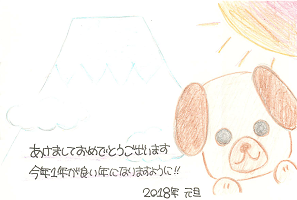 あけましておめでとうございます
今年1年が良い年になりますように!!
2018年 元旦